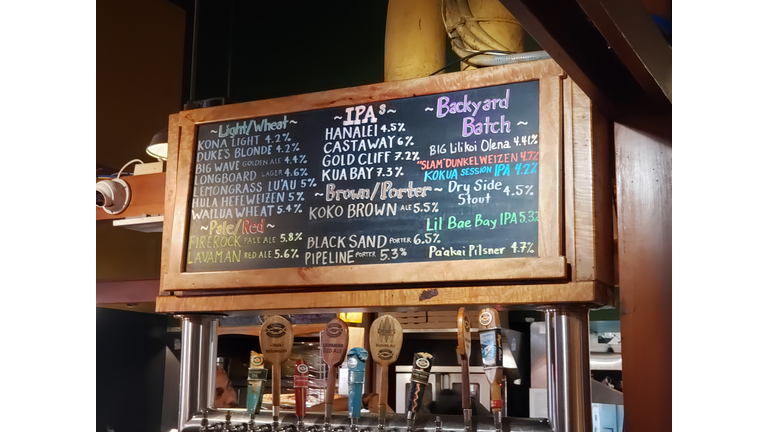 ~Light/Wheat~
KONA LIGHT 4.2%
DUKE'S BLONDE 4.2%
BIG WAVE GOLDEN ALE 4.4%
LONGBOARD LAGER 4.6%
LEMONGRASS LU'AU 5%
HULA HEFEWEIZEN 5%
WAILUA WHEAT 5.4%
~Pale/Red~
FIREROCK PALE ALE 5.8%
LAVAMAN RED ALE 5.6%
~IPAs~
HANALEI 4.5%
CASTAWAY 6%
GOLD CLIFF 7.2%
KUA BAY 7.3%
~Brown/Porter~
KOKO BROWN ALE 5.5%
BLACK SAND PORTER 6.5%
PIPELINE PORTER 5.3%
~Backyard
Batch~
BIG Lilikoi Olena 4.41%
"SLAM" DUNKELWEIZEN 4.7%
KOKUA SESSION IPA 4.2%
Dry Side
Stout 4.5%
Lil Bae Bay IPA 5.3%
Pa'akai Pilsner 4.7%